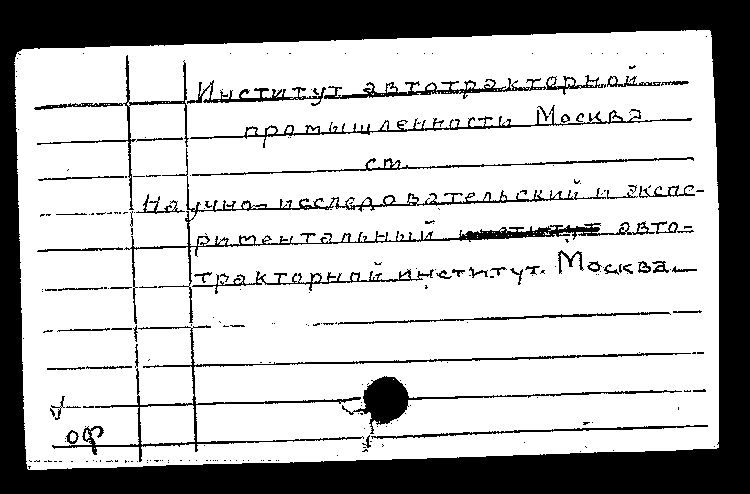 Институт автотракторной
промышленности Москва
см.
Научно-исследовательский и экспе-
риментальный авто-
тракторной институт. Москва.
оф